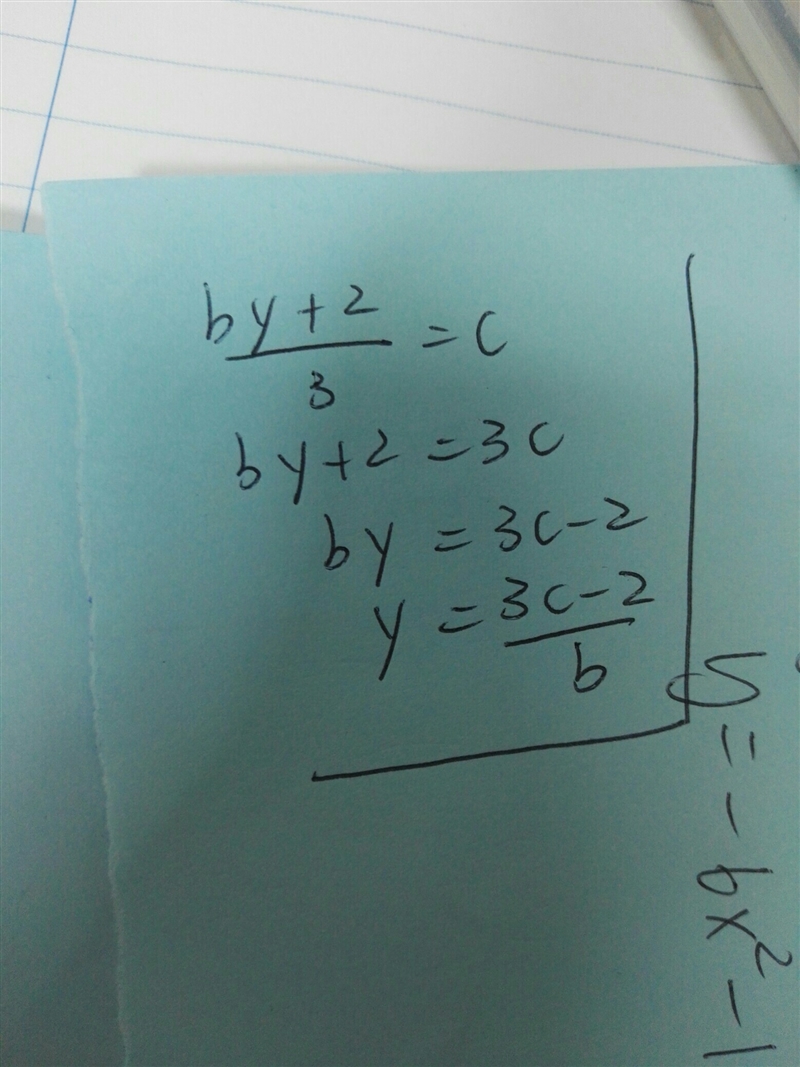 by+2
3
=c
by+2=3c
by=3c-2
y=3c-2
b
5=-6x²-1